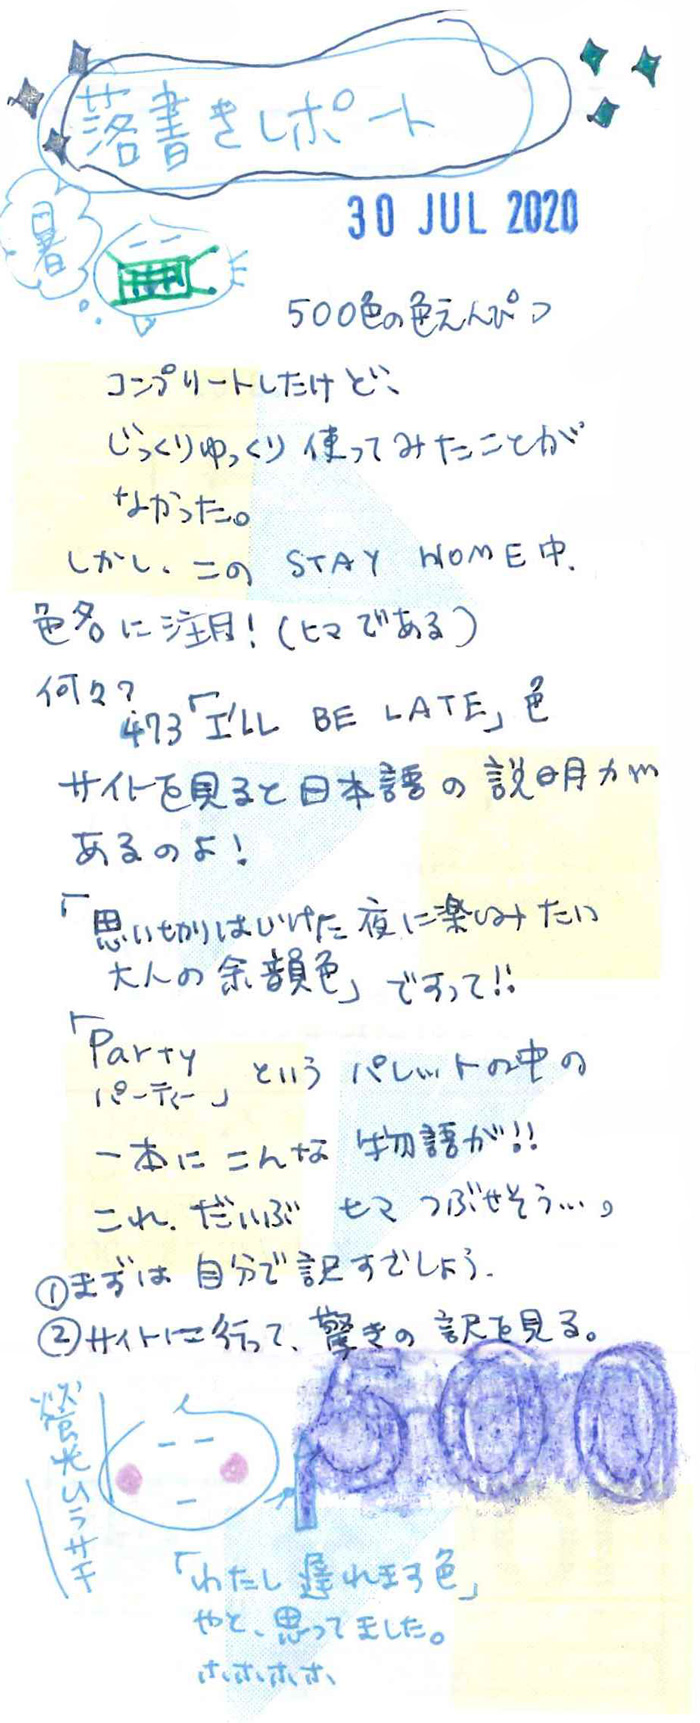 落書きレポート
30 JUL 2020
暑
500色の色えんぴつ
コンプリートしたけど、
じっくりゆっくり使ってみたことが
なかった。
しかし、この STAY HOME中、
色名に注目!(ヒマである)
何々?
473「I'LL BE LATE」色
サイトを見ると日本語の説明が
あるのよ!
「思い切りはじけた夜に楽しみたい
大人の余韻色」ですって!!
「Party
パーティー」というパレットの中の
一本にこんな物語が!!
これ、だいぶヒマつぶせそう…。
①まずは自分で訳すでしょう。
②サイトに行って、驚きの訳を見る。
500
蛍光ひらサキ
「わたし遅れます色」
やと、思ってました。
ホホホホ、